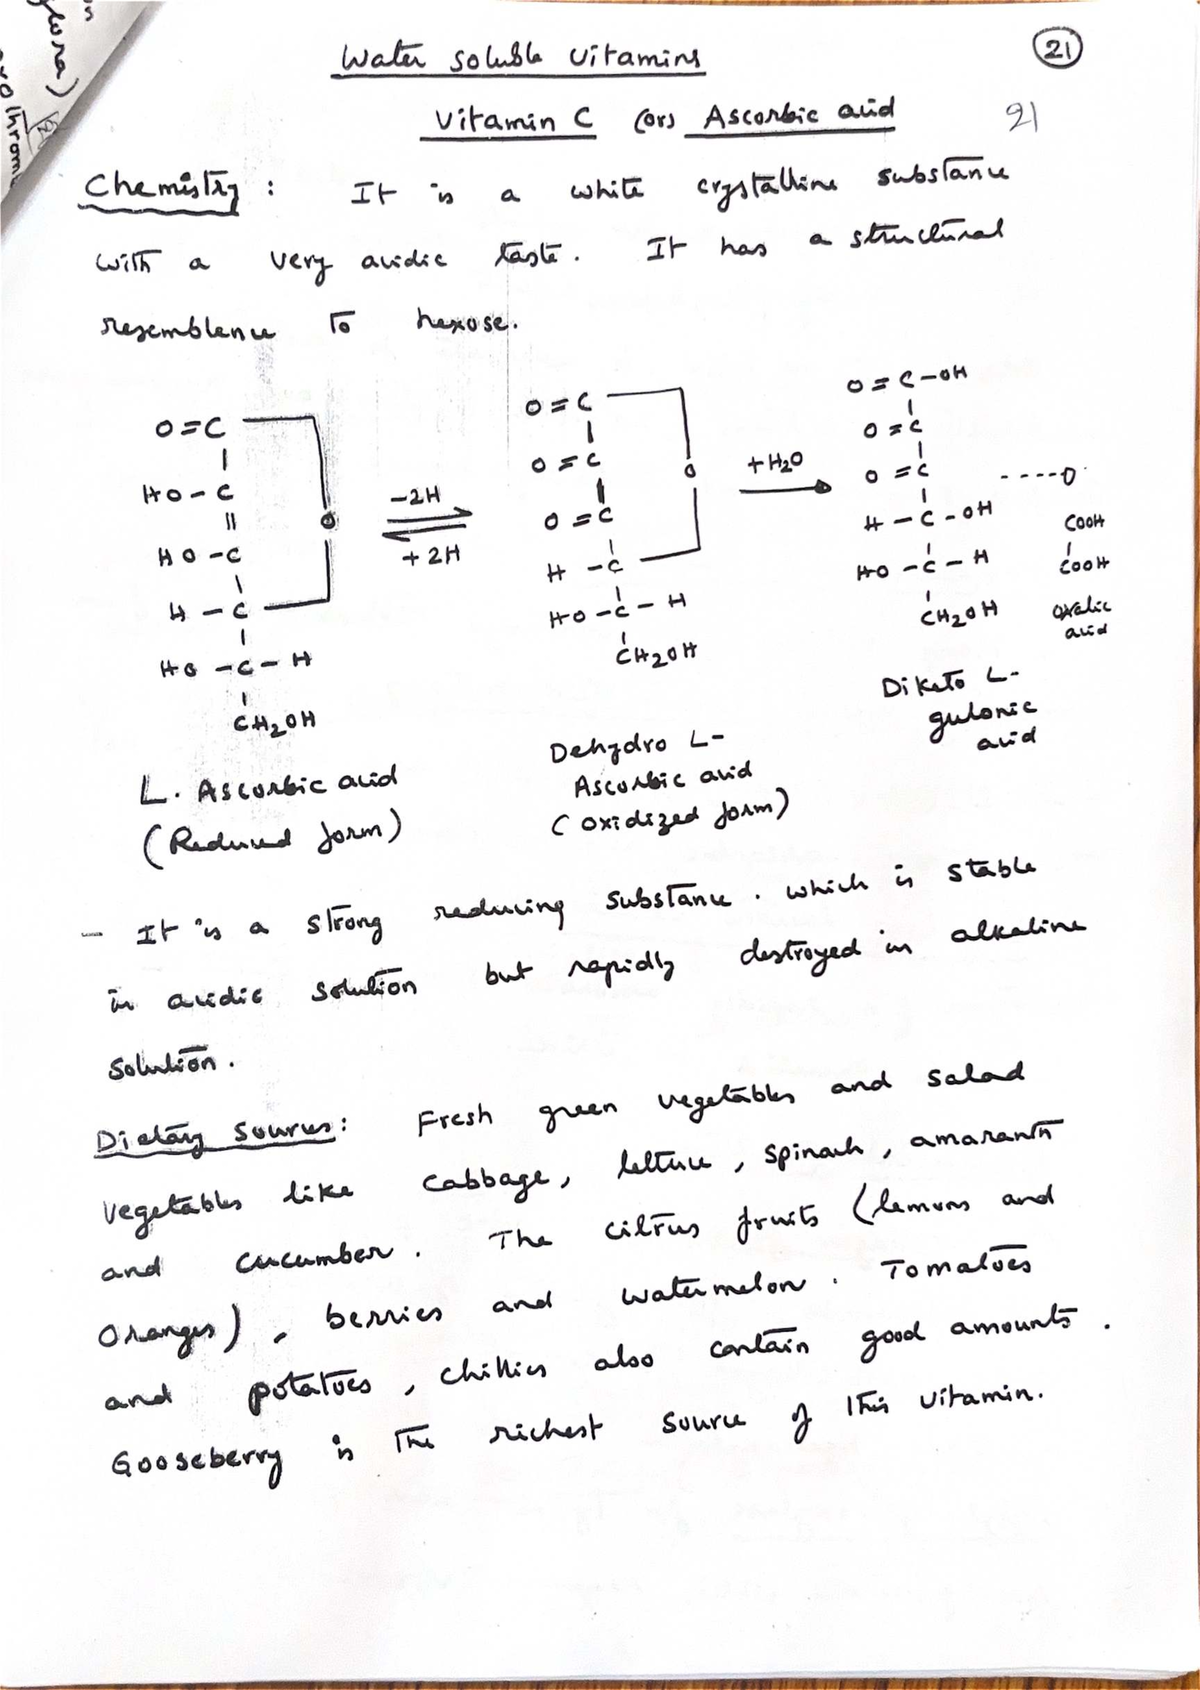 Water soluble vitamins
21
Vitamin C (or) Ascorbic acid
21
Chemistry : It is a white crystalline substance
with a very acidic taste. It has a structural
resemblence to hexose.
O=C
HO-C
||
HO-C
H-C
HO-C-H
CH2OH
O
-2H
+2H
O=C
O=C
O=C
H-C
HO-C-H
CH2OH
O
+H2O
O=C-OH
O=C
O=C
H-C-OH
HO-C-H
CH2OH
----O
COOH
COOH
oxalic
acid
L. Ascorbic acid
(Reduced form)
Dehydro L-
Ascorbic acid
(oxidized form)
Diketo L-
gulonic
acid
- It is a strong reducing substance. which is stable
in acidic solution but rapidly destroyed in alkaline
solution.
Dietary sources: Fresh green vegetables and salad
vegetables like cabbage, lettuce, spinach, amaranth
and cucumber. The citrus fruits (lemons and
oranges), berries and watermelon. Tomatoes
and potatoes, chillies also contain good amounts.
Gooseberry is the richest source of this vitamin.